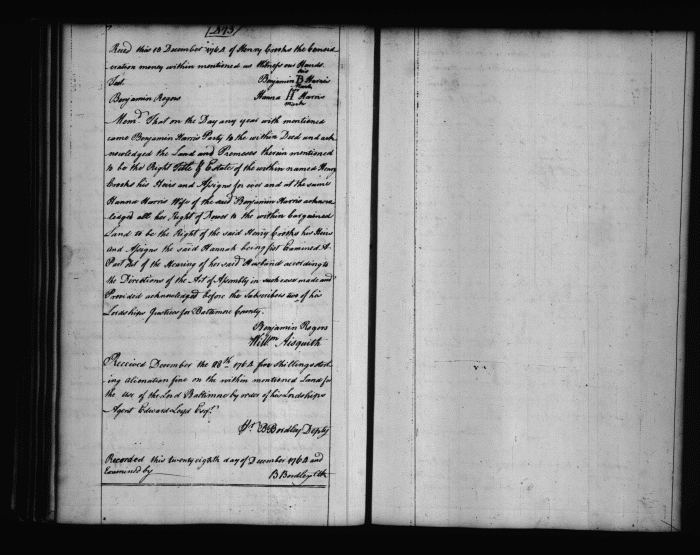 Recd this 18 December 1764 of Henry Crooks the Consid
eration money within mentioned as Witness our Hands
Test.
his
Benjamin B Harris
mark
Benjamin Rogers
Hanna H Harris
mark
Memd. That on the Day any year with mentioned
came Benjamin Harris Party to the within Deed and ack
nowledged the Land and Premeses therein mentioned
to be the Right Title & Estate of the within named Henry
Crooks his Heirs and Assigns for ever and at the same
Hanna Harris Wife of the said Benjamin Harris acknow
ledged all her Right of Dower to the within bargained
Land to be the Right of the said Henry Crooks his Heirs
and Assigns the said Hannah being fist Examined A
Part Out of the Hearing of her said Husband according to
the Directions of the Act of Assembly in such case made and
Provided acknowledged before the Subscribers two of his
Lordships Justices for Baltimore County.
Benjamin Rogers
Willm Aisquith
Received December the 28th 1764 five Shillings sterl
ing alienation fine on the within mentioned Land for
the use of the Lord Baltimore by order of his Lordships
Agent Edward Loyd Esqr.
Pr B Bordley Depty
Recorded this twenty eighth day of December 1764 and
Examined by
B Bordley Clk